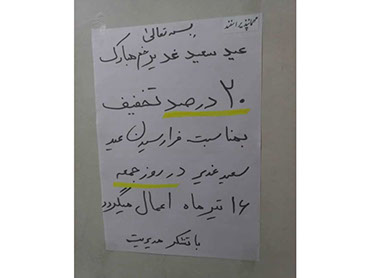 بسمه تعالی
عید سعید غدیر خم مبارک
۲۰ درصد تخفیف
بمناسبت فرا رسیدن عید
سعید غدیر در روز جمعه
۱۶ تیر ماه اعمال میگردد
با تشکر مدیریت